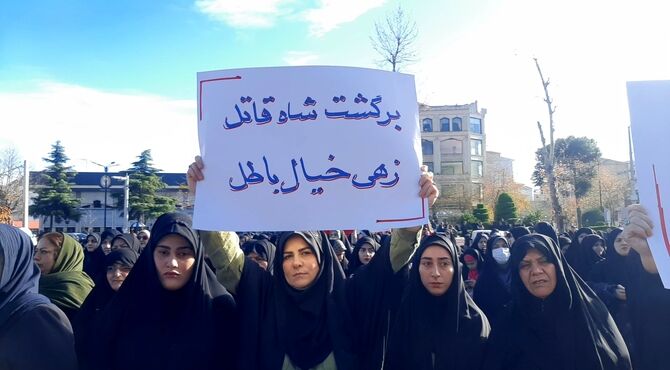 برگشت شاه قاتل
زهی خیال باطل